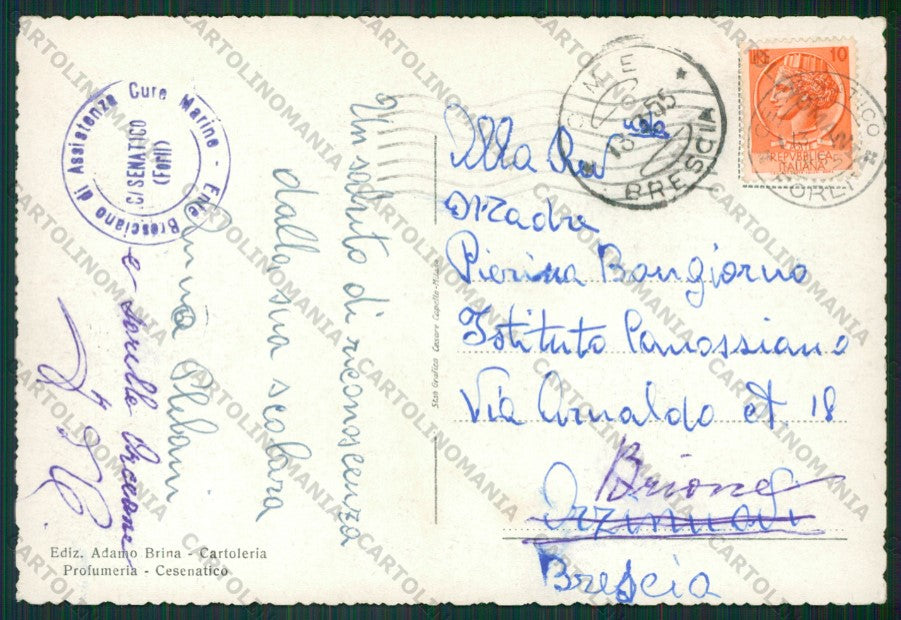 Ente Bresciano di Assistenza Cure Marine -
CESENATICO
(Forlì)
Un saluto di riconoscenza
dalla sua scolara
Plebani
e sorella
Ediz. Adamo Brina - Cartoleria
Profumeria - Cesenatico
Stab Grafico Cesare Capello - Milano
OME
BRESCIA
10
REPVBBLICA
ITALIANA
Alla Rev
Madre
Pierina Bongiorno
Istituto Canossiano
Via Arnaldo N 18
Brione
Orzinuovi
Brescia